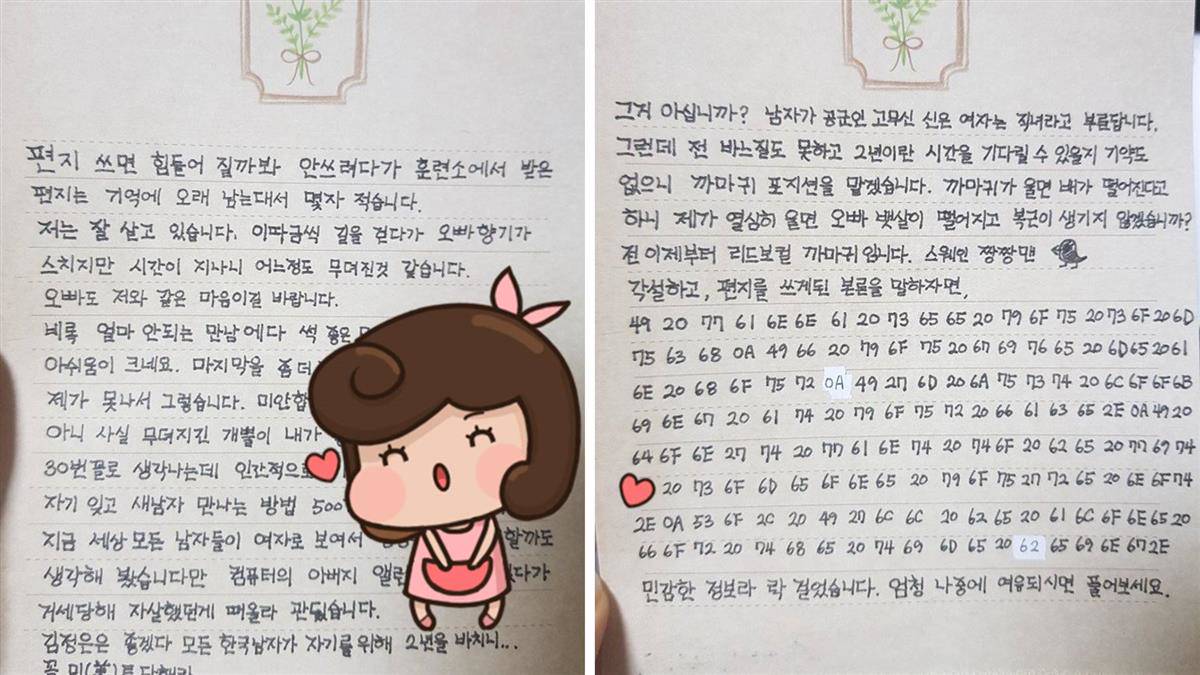 편지 쓰면 힘들어 질까봐 안쓰려다가 훈련소에서 받은
편지는 기억에 오래 남는대서 몇자 적습니다.
저는 잘 살고 있습니다. 이따금씩 길을 걷다가 오빠향기가
스치지만 시간이 지나니 어느정도 무뎌진것 같습니다.
오빠도 저와 같은 마음이길 바랍니다.
비록 얼마 안되는 만남에다 썩 좋은
아쉬움이 크네요. 마지막을 좀 더
제가 못나서 그렇습니다. 미안합
아니 사실 무뎌지긴 개뿔이 내가
30번꼴로 생각나는데 인간적으로
자기 잊고 새남자 만나는 방법 500
지금 세상 모든 남자들이 여자로 보여서 할까도
생각해 봤습니다만 컴퓨터의 아버지 앨런 가
거세당해 자살했던게 떠올라 관뒀습니다.
김정은은 좋겠다 모든 한국남자가 자기를 위해 2년을 바치니...
그거 아십니까? 남자가 공군인 고무신 신은 여자는 직녀라고 부른답니다.
그런데 전 바느질도 못하고 2년이란 시간을 기다릴 수 있을지 기약도
없으니 까마귀 포지션을 맡겠습니다. 까마귀가 울면 배가 떨어진다고
하니 제가 열심히 울면 오빠 뱃살이 떨어지고 복근이 생기지 않겠습니까?
전 이제부터 리드보컬 까마귀입니다. 스웨인 짱짱맨
각설하고, 편지를 쓰게된 본론을 말하자면,
49 20 77 61 6E 6E 61 20 73 65 65 20 79 6F 75 20 73 6F 20 6D
75 63 68 0A 49 66 20 79 6F 75 20 67 69 76 65 20 6D 65 20 61
6E 20 68 6F 75 72 0A 49 27 6D 20 6A 75 73 74 20 6C 6F 6F 6B
69 6E 67 20 61 74 20 79 6F 75 72 20 66 61 63 65 2E 0A 49 20
64 6F 6E 27 74 20 77 61 6E 74 20 74 6F 20 62 65 20 77 69 74
20 73 6F 6D 65 6F 6E 65 20 79 6F 75 27 72 65 20 6E 6F 74
2E 0A 53 6F 2C 20 49 27 6C 6C 20 62 65 20 61 6C 6F 6E 65 20
66 6F 72 20 74 68 65 20 74 69 6D 65 20 62 65 69 6E 67 2E
민감한 정보라 락 걸었습니다. 엄청 나중에 여유되시면 풀어보세요.